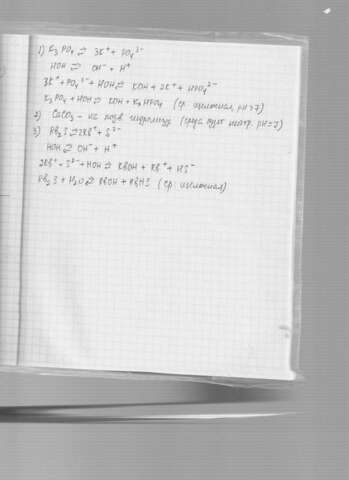 1) K₃PO₄ ⇄ 3K⁺ + PO₄³⁻
HOH ⇄ OH⁻ + H⁺
3K⁺ + PO₄³⁻ + HOH ⇄ KOH + 2K⁺ + HPO₄²⁻
K₃PO₄ + HOH ⇄ KOH + K₂HPO₄ (ср. щелочная, pH>7)
2) CaCO₃ - не подв. гидролизу (среда будет нейтр. pH=7)
3) Rb₂S ⇄ 2Rb⁺ + S²⁻
HOH ⇄ OH⁻ + H⁺
2Rb⁺ + S²⁻ + HOH ⇄ RBOH + Rb⁺ + HS⁻
Rb₂S + H₂O ⇄ RBOH + RBHS (ср. щелочная)